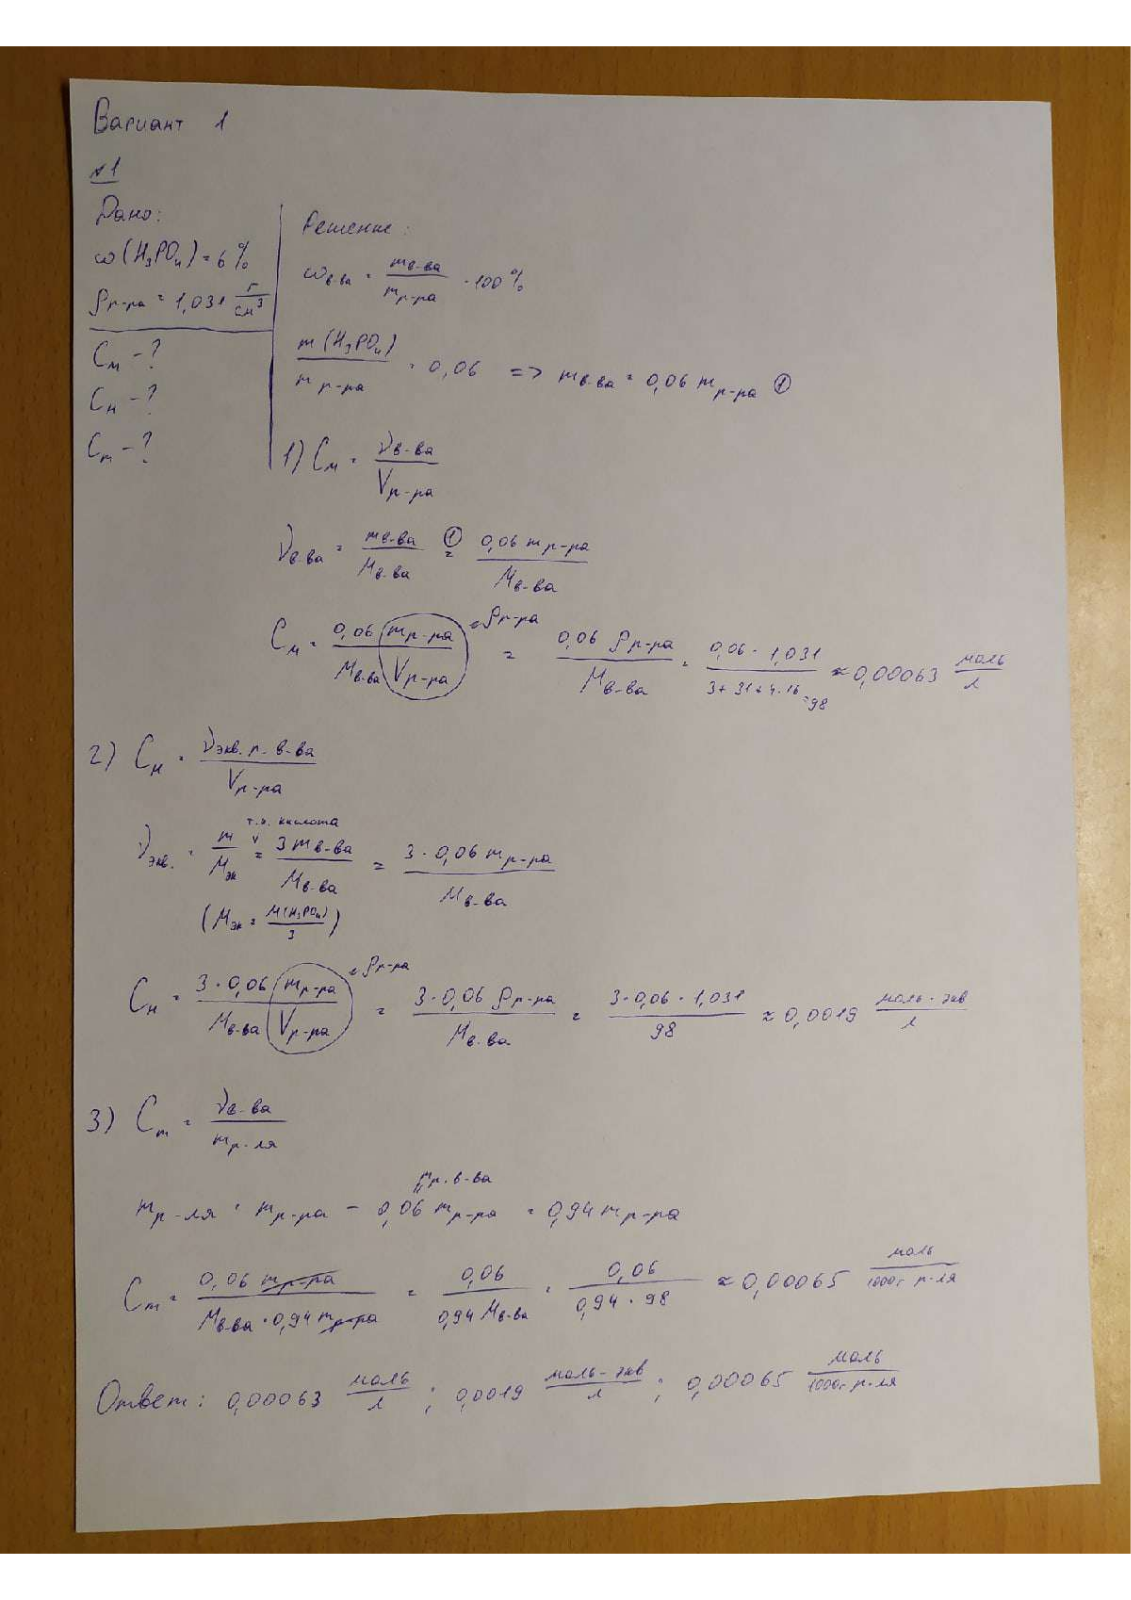 Вариант 1
№1
Дано:
ω(H₃PO₄) = 6%
ρр-ра = 1,031 г/см³
Cм - ?
Cн - ?
Cm - ?
Решение:
ωв-ва = mв-ва/mр-ра · 100%
m(H₃PO₄)/mр-ра = 0,06 => mв-ва = 0,06 mр-ра ①
1) Cм = νв-ва/Vр-ра
νв-ва = mв-ва/Mв-ва ①= 0,06 mр-ра/Mв-ва
Cм = 0,06 mр-ра/Mв-ва Vр-ра = ρр-ра = 0,06 ρр-ра/Mв-ва = 0,06 · 1,031/3+31+4·16=98 ≈ 0,00063 моль/л
2) Cн = νэкв. р. в-ва/Vр-ра
т.к. кислота
νэкв. = m/Mэк = 3mв-ва/Mв-ва = 3 · 0,06 mр-ра/Mв-ва
(Mэк = M(H₃PO₄)/3)
Cн = 3 · 0,06 mр-ра/Mв-ва Vр-ра = ρр-ра = 3 · 0,06 ρр-ра/Mв-ва = 3 · 0,06 · 1,031/98 ≈ 0,0019 моль-экв/л
3) Cm = νв-ва/mр-ля
mр. в-ва
mр-ля = mр-ра - 0,06 mр-ра = 0,94 mр-ра
Cm = 0,06 mр-ра/Mв-ва · 0,94 mр-ра = 0,06/0,94 Mв-ва = 0,06/0,94 · 98 ≈ 0,00065 моль/1000г р-ля
Ответ: 0,00063 моль/л; 0,0019 моль-экв/л; 0,00065 моль/1000г р-ля